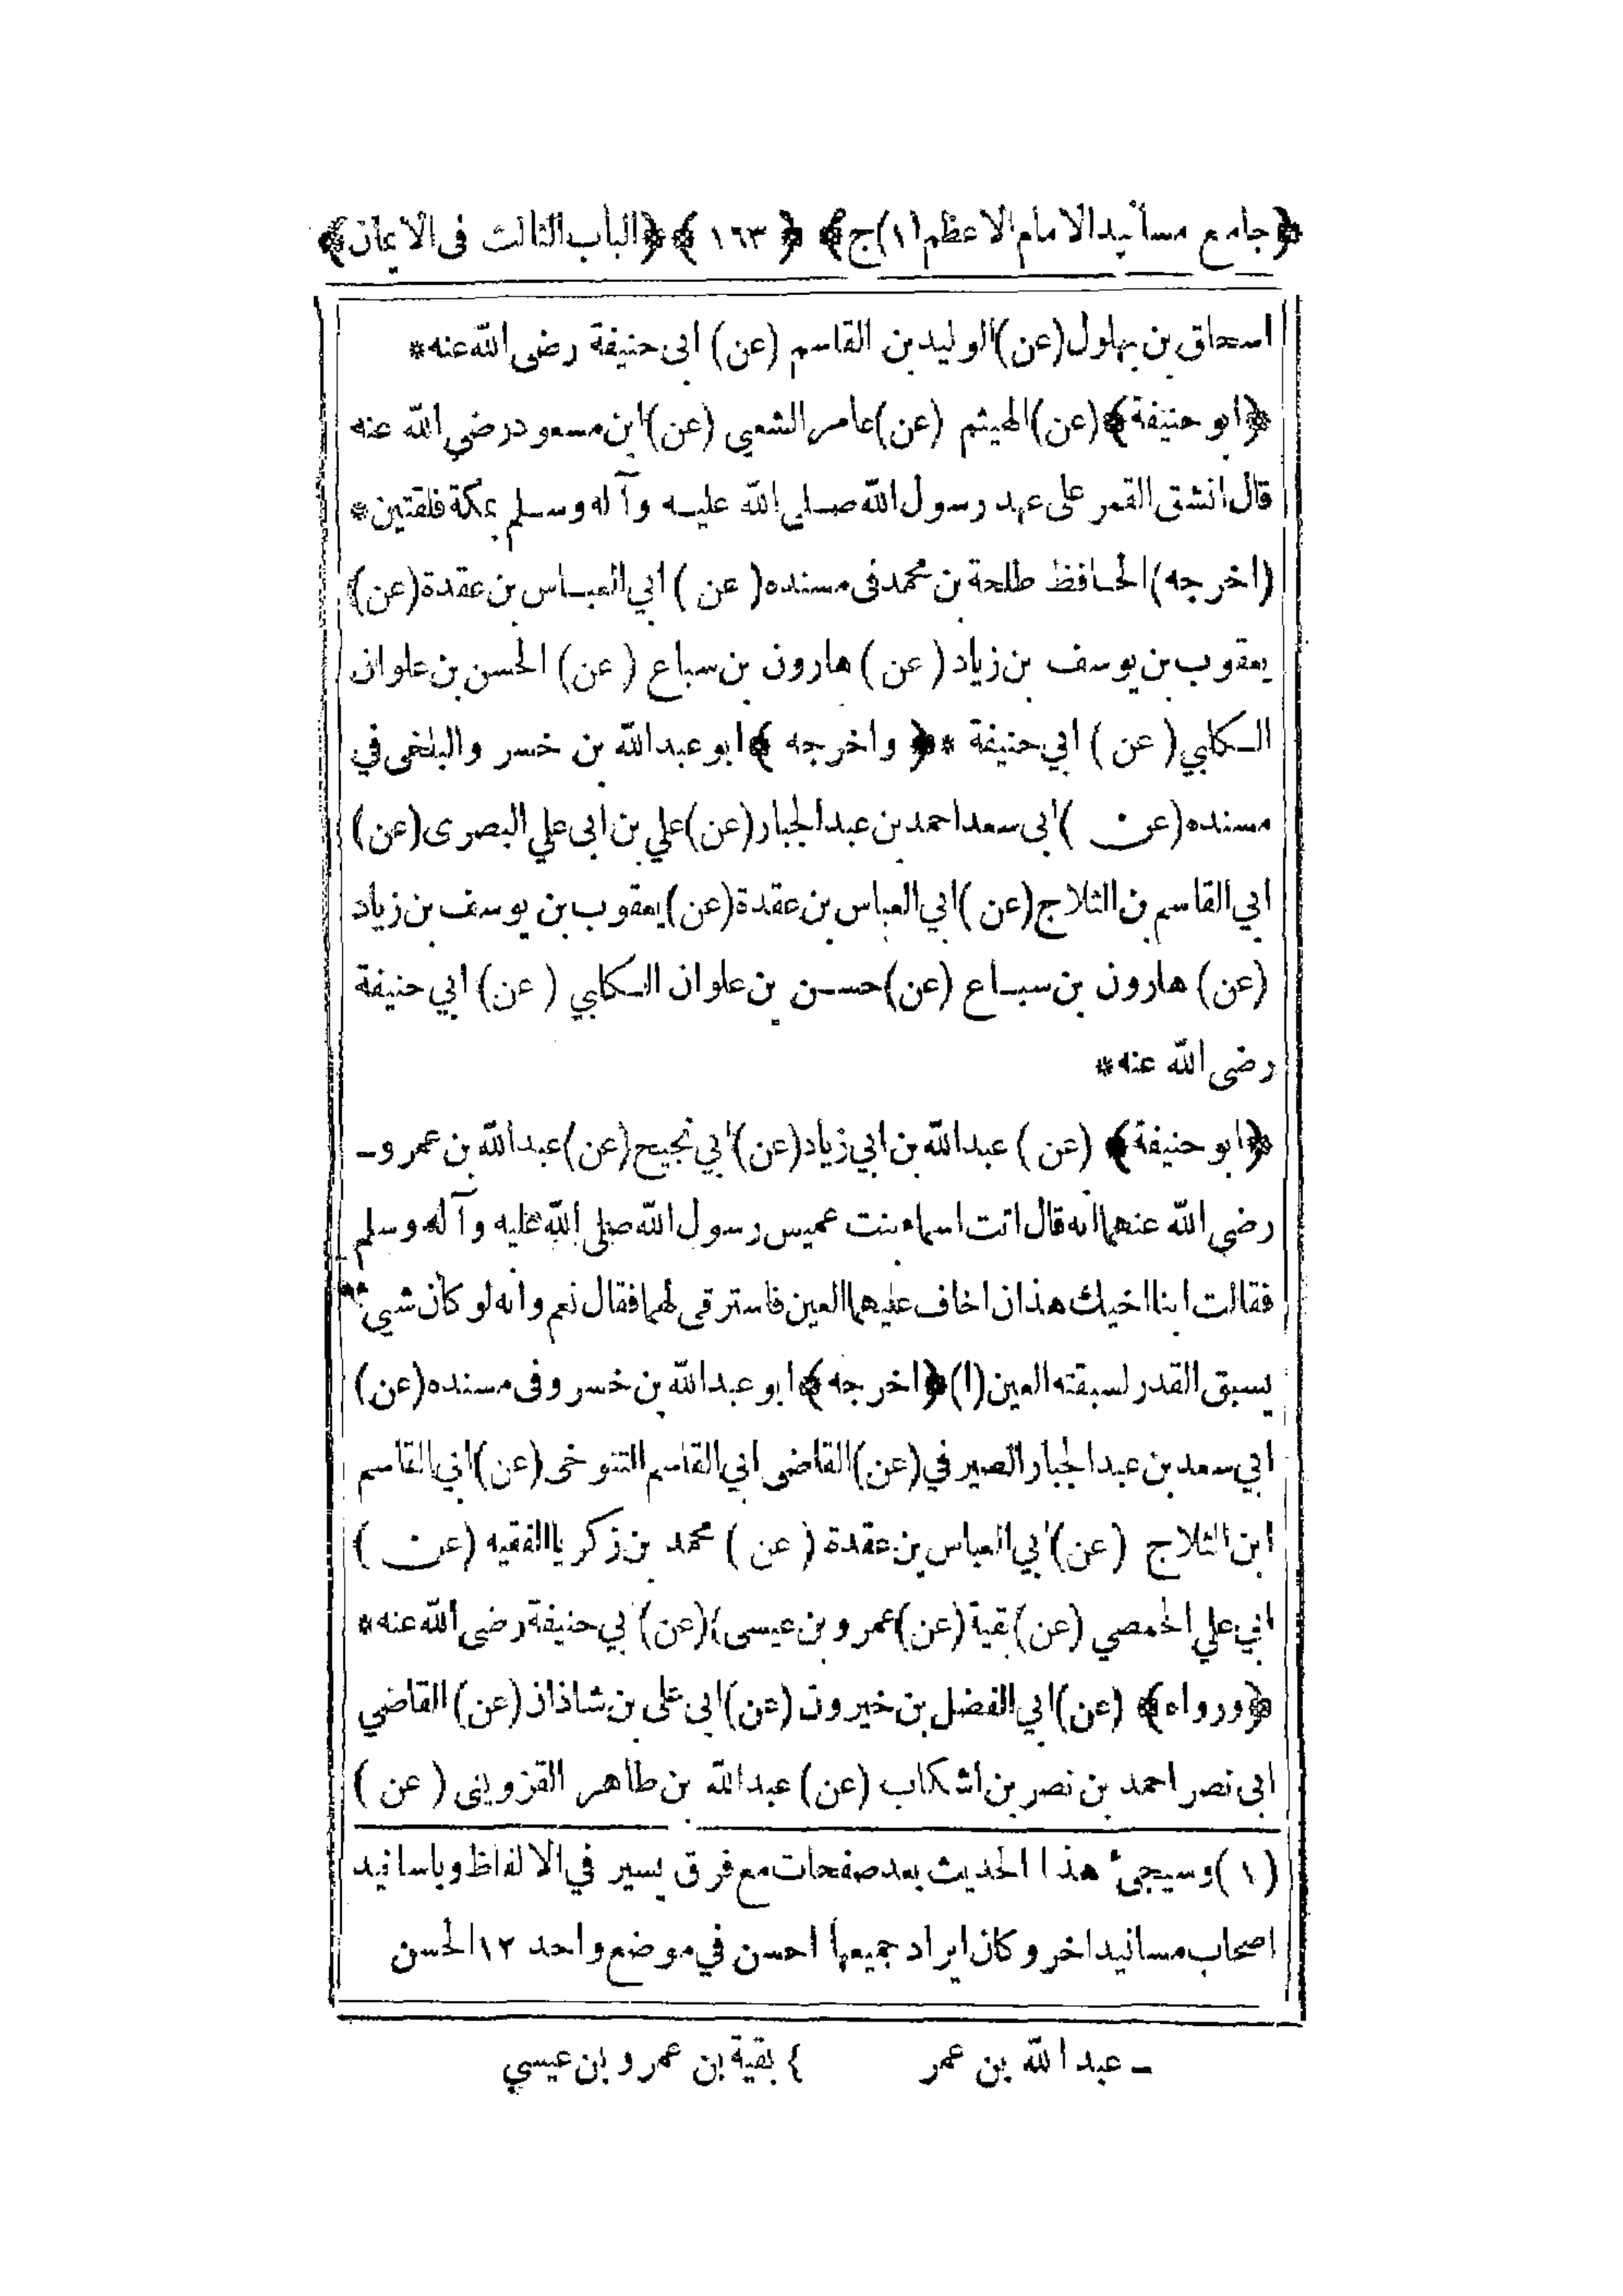 ﴿جامع مسانيد الامام الاعظم(١)ج﴾ ﴿١٦٣﴾ ﴿الباب الثالث فى الايمان﴾
اسحاق بن بهلول(عن)الوليد بن القاسم (عن) ابى حنيفة رضى الله عنه*
﴿ابو حنيفة﴾(عن)الهيثم (عن)عامر الشعبي (عن)ابن مسعود رضي الله عنه
قال انشق القمر على عهد رسول الله صلى الله عليه وآله وسلم بمكة فلقتين*
(اخرجه)الحافظ طلحة بن محمد فى مسنده(عن) ابي العباس بن عقدة(عن)
يعقوب بن يوسف بن زياد(عن)هارون بن سباع (عن) الحسن بن علوان
الكلبي(عن) ابي حنيفة *﴿واخرجه﴾ ابو عبد الله بن خسر والبلخى في
مسنده(عن) ابى سعد احمد بن عبد الجبار(عن)علي بن ابى علي البصرى(عن)
ابي القاسم بن الثلاج(عن)ابي العباس بن عقدة(عن)يعقوب بن يوسف بن زياد
(عن) هارون بن سباع (عن)حسن بن علوان الكلبي (عن) ابي حنيفة
رضى الله عنه*
﴿ابو حنيفة﴾ (عن) عبد الله بن ابي زياد(عن)ابي نجيح(عن)عبد الله بن عمرو ـ
رضى الله عنهما انه قال اتت اسماء بنت عميس رسول الله صلى الله عليه وآله وسلم
فقالت ابنا اخيك هذان اخاف عليهما العين فاسترقى لهما فقال نعم وانه لو كان شيئ
يسبق القدر لسبقته العين(١)﴿اخرجه﴾ابو عبد الله بن خسرو فى مسنده(عن)
ابي سعد بن عبد الجبار الصيرفي(عن)القاضى ابي القاسم التنوخى(عن)ابي القاسم
ابن الثلاج (عن)ابي العباس بن عقدة(عن) محمد بن زكريا الفقيه (عن)
ابي علي الحمصي (عن)بقية(عن)عمرو بن عيسى}(عن)ابي حنيفة رضى الله عنه*
﴿ورواه﴾ (عن)ابي الفضل بن خيرون (عن)ابى على بن شاذان(عن)القاضي
ابى نصر احمد بن نصر بن اشكاب (عن)عبد الله بن طاهر القزوينى (عن)
(١)وسيجىء هذا الحديث بعد صفحات مع فرق يسير في الالفاظ وباسانيد
اصحاب مسانيد اخر وكان ايراد جميعها احسن في موضع واحد ١٢ الحسن
ـ عبد الله بن عمر } بقية بن عمرو بن عيسي